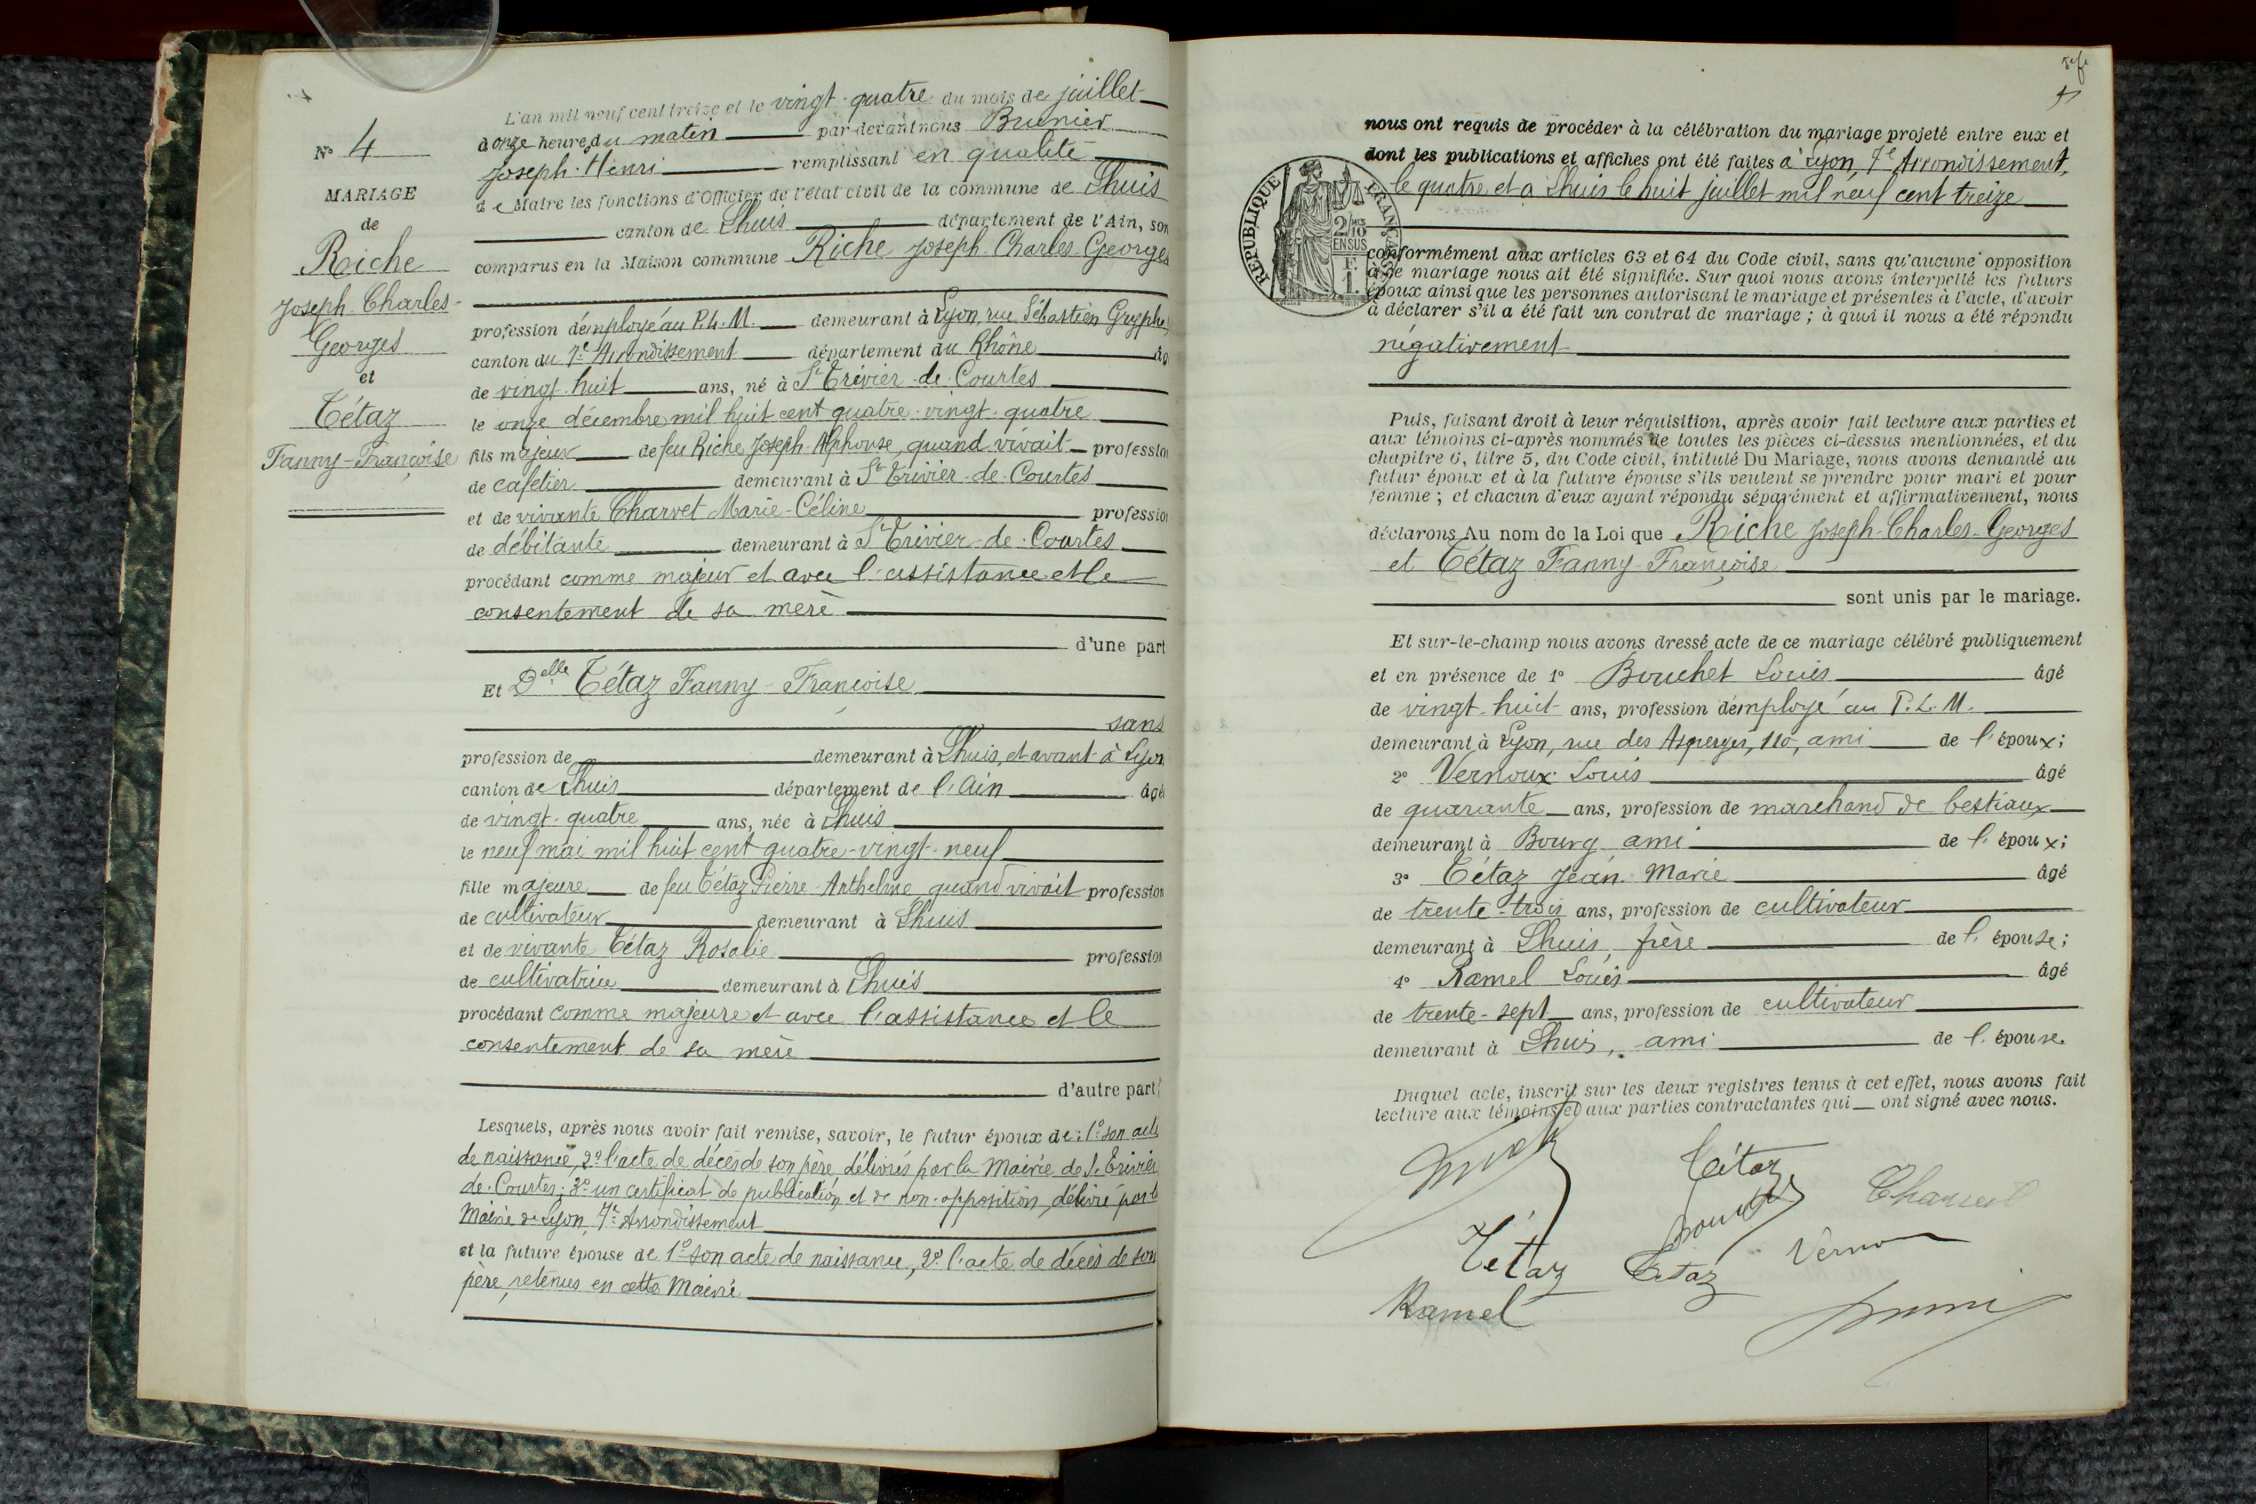 N° 4
MARIAGE
de
Riche
Joseph-Charles-
Georges
et
Tétaz
Fanny-Françoise
L'an mil neuf cent treize et le vingt-quatre du mois de juillet
à onze heures du matin par-devant nous Brunier
Joseph-Henri remplissant en qualité
de Maire les fonctions d'Officier de l'état civil de la commune de Lhuis
canton de Lhuis département de l'Ain, son
comparus en la Maison commune Riche Joseph-Charles-Georges
profession d'employé au P.L.M. demeurant à Lyon, rue Sébastien Gryphe,
canton du 7e Arrondissement département du Rhône âg
de vingt-huit ans, né à St Trivier-de-Courtes
le onze décembre mil huit cent quatre-vingt-quatre
fils majeur de feu Riche Joseph-Alphonse, quand vivait profession
de cafetier demeurant à St Trivier-de-Courtes
et de vivante Charvet Marie-Céline profession
de débitante demeurant à St Trivier-de-Courtes
procédant comme majeur et avec l'assistance et le
consentement de sa mère
d'une part
Et Delle Tétaz Fanny-Françoise
sans
profession de demeurant à Lhuis, et avant à Lyon
canton de Lhuis département de l'Ain âgé
de vingt-quatre ans, née à Lhuis
le neuf mai mil huit cent quatre-vingt-neuf
fille majeure de feu Tétaz Pierre-Anthelme quand vivait profession
de cultivateur demeurant à Lhuis
et de vivante Tétaz Rosalie profession
de cultivatrice demeurant à Lhuis
procédant comme majeure et avec l'assistance et le
consentement de sa mère
d'autre part;
Lesquels, après nous avoir fait remise, savoir, le futur époux de: 1° son acte
de naissance, 2° l'acte de décès de son père délivrés par la Mairie de St Trivier
de-Courtes; 3° un certificat de publication et de non-opposition, délivré par la
Mairie de Lyon, 7e Arrondissement
et la future épouse de 1° son acte de naissance, 2° l'acte de décès de son
père, retenus en cette Mairie
nous ont requis de procéder à la célébration du mariage projeté entre eux et
dont les publications et affiches ont été faites à Lyon, 7e Arrondissement,
le quatre et à Lhuis le huit juillet mil neuf cent treize
RÉPUBLIQUE FRANÇAISE
2/10
EN SUS
F.
1.
conformément aux articles 63 et 64 du Code civil, sans qu'aucune opposition
à ce mariage nous ait été signifiée. Sur quoi nous avons interpellé les futurs
époux ainsi que les personnes autorisant le mariage et présentes à l'acte, d'avoir
à déclarer s'il a été fait un contrat de mariage; à quoi il nous a été répondu
négativement
Puis, faisant droit à leur réquisition, après avoir fait lecture aux parties et
aux témoins ci-après nommés de toutes les pièces ci-dessus mentionnées, et du
chapitre 6, titre 5, du Code civil, intitulé Du Mariage, nous avons demandé au
futur époux et à la future épouse s'ils veulent se prendre pour mari et pour
femme; et chacun d'eux ayant répondu séparément et affirmativement, nous
déclarons Au nom de la Loi que Riche Joseph-Charles-Georges
et Tétaz Fanny-Françoise
sont unis par le mariage.
Et sur-le-champ nous avons dressé acte de ce mariage célébré publiquement
et en présence de 1° Bouchet Louis âgé
de vingt-huit ans, profession d'employé au P.L.M.
demeurant à Lyon, rue des Asperges, 110, ami de l'époux;
2° Vernoux Louis âgé
de quarante ans, profession de marchand de bestiaux
demeurant à Bourg ami de l'époux;
3° Tétaz Jean-Marie âgé
de trente-trois ans, profession de cultivateur
demeurant à Lhuis, frère de l'épouse;
4° Ramel Louis âgé
de trente-sept ans, profession de cultivateur
demeurant à Lhuis, ami de l'épouse.
Duquel acte, inscrit sur les deux registres tenus à cet effet, nous avons fait
lecture aux témoins et aux parties contractantes qui ont signé avec nous.
Tétaz
Tétaz
Tétaz
Ramel